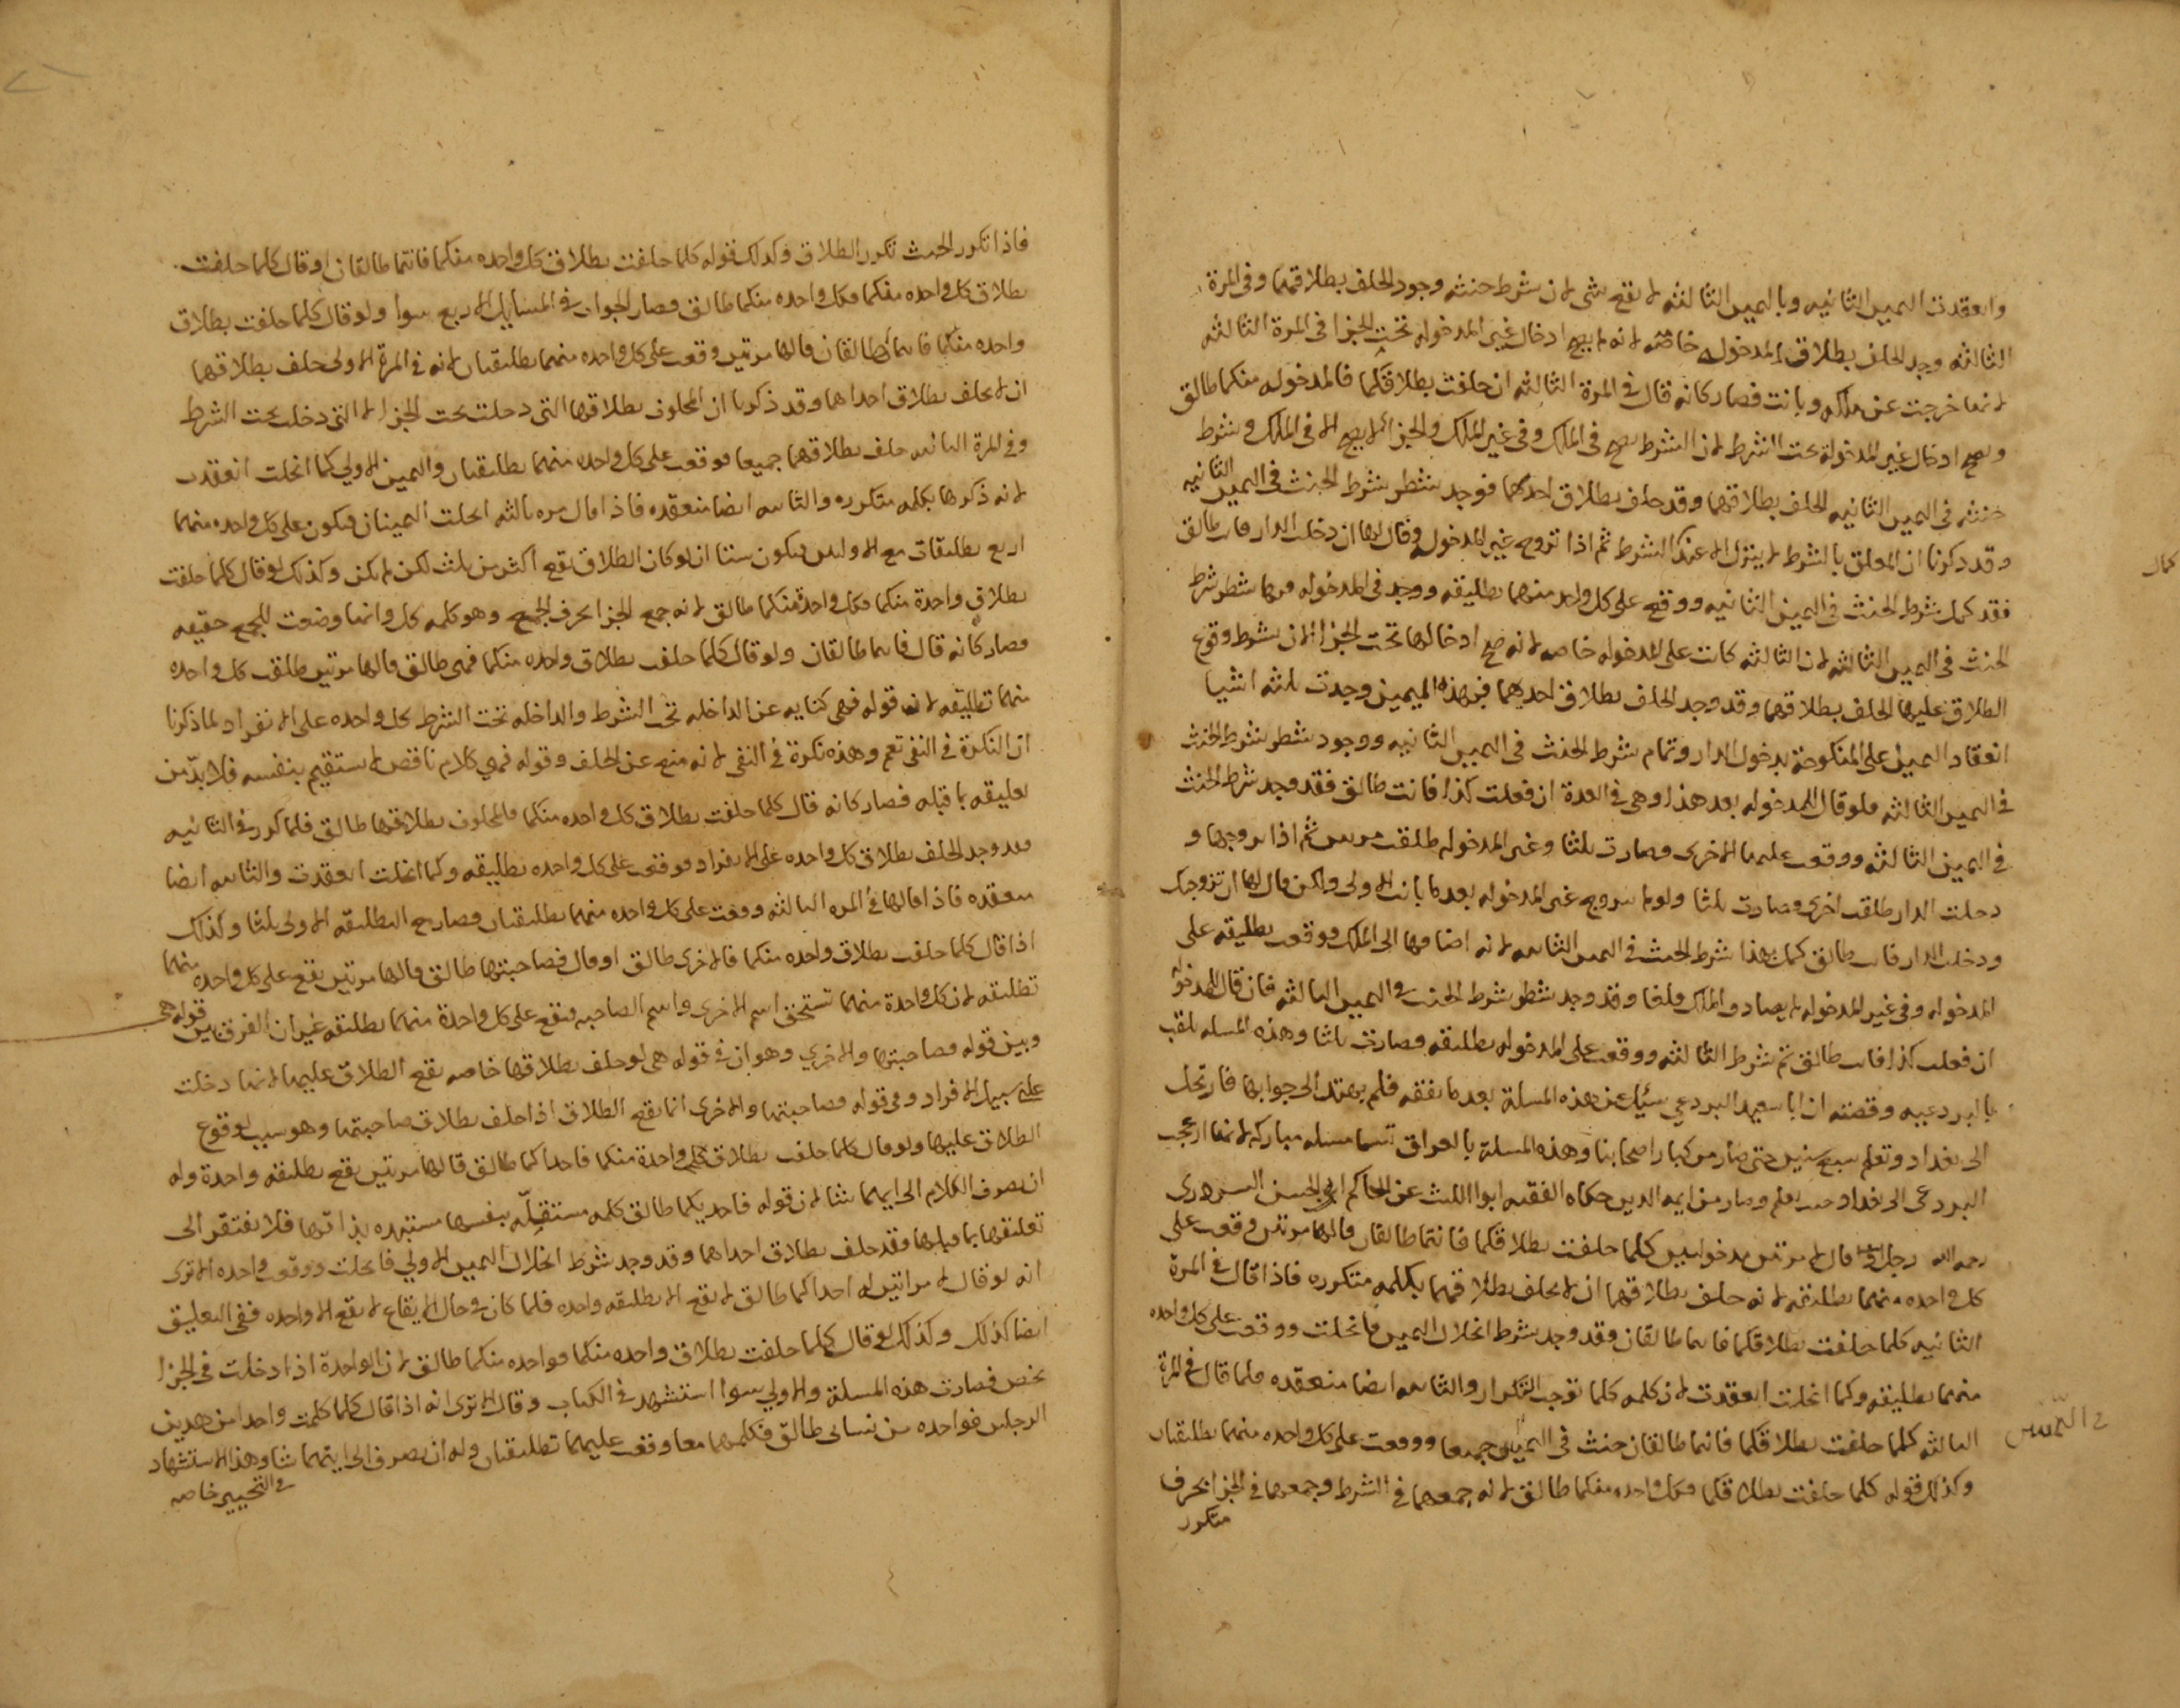 وانعقدت اليمين الثانيه وباليمين الثالثه لا يقع شي لان شرط حنثه وجود الحلف بطلاقهما وفي المرة
الثالثه وجد الحلف بطلاق المدخوله خاصه لانه لا يصح ادخال غير المدخوله تحت الجزا في المرة الثالثه
لانها خرجت عن ملكه وبانت فصار كانه قال في المرة الثالثه ان حلفت بطلاقكما فالمدخوله منكما طالق
ويصح ادخال غير المدخولة تحت الشرط لان الشرط يصح في الملك وفي غير الملك والجزا لا يصح الا في الملك وشرط
حنثه في اليمين الثانيه الحلف بطلاقهما وقد حلف بطلاق احدىهما فوجد شطر شرط الحنث في اليمين الثانيه
وقد ذكرنا ان المعلق بالشرط لا ينزل الا عند الشرط ثم اذا تزوج غير المدخوله وقال لها ان دخلت الدار فانت طالق
فقد كمل شرط الحنث في اليمين الثانيه ووقع على كل واحد منهما تطليقه ووجد في المدخوله شطر شرط
الحنث في اليمين الثالثه لان الثالثه كانت على المدخوله خاصه لانه صح ادخالها تحت الجزا لان شرط وقوع
الطلاق عليها الحلف بطلاقهما وقد وجد الحلف بطلاق احديهما فبهذه اليمين وجدت ثلثه اشيا
انعقاد اليمين على المنكوحة بدخول الدار وتمام شرط الحنث في اليمين الثانيه ووجود شطر شرط الحنث
في اليمين الثالثه فلو قال للمدخوله بعد هذا وهي في العدة ان فعلت كذا فانت طالق فقد وجد شرط الحنث
في اليمين الثالثه ووقعت عليها الاخرى وصارت ثلثا وغير المدخوله طلقت مرتين ثم اذا تزوجها و
دخلت الدار طلقت اخرى وصارت ثلثا ولو لم يتزوج غير المدخوله بعد ما بانت الاولى ولكن قال لها ان تزوجتك
ودخلت الدار فانت طالق كمل بهذا شرط الحنث في اليمين الثانيه لانه اضافها الى الملك ووقعت تطليقه على
المدخوله وفي غير المدخوله لا يصادف الملك فلغا وقد وجد شطر شرط الحنث في اليمين الثالثه فان قال للمدخوله
ان فعلت كذا فانت طالق تم شرط الثالثه ووقعت على المدخوله تطليقه وصارت ثلثا وهذه المسله تلقب
بالبردعيه وقصته ان ابا سعيد البردعي سئل عن هذه المسلة بعد ما تفقه فلم يهتد الى جوابها فارتحل
الى بغداد وتعلم سبع سنين حتى صار من كبار اصحابنا وهذه المسلة بالعراق تسما مسله مباركه لانها ازعجت
البردعى الى بغداد حتى تعلم وصار من ايمه الدين حكاه الفقيه ابوا الليث عن الحاكم ابي الحسن السردرى
رحمه الله رجل قال لامرتين مدخولين كلما حلفت بطلاقكما فانتما طالقان قالها مرتين وقعت على
كل واحده منهما تطليقه لانه حلف بطلاقهما ان لا يحلف بطلاقهما بكلمه متكرره فاذا قال في المرة
الثانيه كلما حلفت بطلاقكما فانتما طالقان فقد وجد شرط انحلال اليمين فانحلت ووقعت على كل واحده
منهما تطليقه وكما انحلت انعقدت لان كلمه كلما توجب التكرار والثانيه ايضا منعقده فلما قال في المرة
الثالثه كلما حلفت بطلاقكما فانتما طالقان حنث في اليمينين جميعا ووقعت على كل واحده منهما تطليقتان
وكذلك قوله كلما حلفت بطلاقكما فكل واحده منكما طالق لانه جمعهما في الشرط وجمعهما في الجزا بحرف
متكرر
كمال
في اليمينين
فاذا تكرر الحنث تكرر الطلاق وكذلك قوله كلما حلفت بطلاق كل واحده منكما فانتما طالقان او قال كلما حلفت
بطلاق كل واحده منكما فكل واحده منكما طالق فصار الجواب في المسايل الاربع سوا ولو قال كلما حلفت بطلاق
واحده منكما فانتما طالقان قالها مرتين وقعت على كل واحده منهما تطليقتان لانه في المرة الاولى حلف بطلاقها
ان لا يحلف بطلاق احداهما وقد ذكرنا ان المحلوف بطلاقها التي دخلت تحت الجزا لا التي دخلت تحت الشرط
وفي المرة الثانيه حلف بطلاقهما جميعا فوقعت على كل واحده منهما تطليقتان واليمين الاولي كما انحلت انعقدت
لانه ذكرها بكلمه متكرره والثانيه ايضا منعقده فاذا قال مره ثالثه انحلت اليمينان فيكون على كل واحده منهما
اربع تطليقات مع الاوليين فيكون ستا ان لو كان الطلاق يقع اكثر من ثلث لكن لا يمكن وكذلك لو قال كلما حلفت
بطلاق واحدة منكما فكل واحدة منكما طالق لانه جمع الجزا بحرف الجمع وهو كلمه كل وانها وضعت للجمع حقيقه
فصار كانه قال فانتما طالقان ولو قال كلما حلفت بطلاق واحده منكما فهي طالق قالها مرتين طلقت كل واحده
منهما تطليقه لان قوله فهي كنايه عن الداخله تحت الشرط والداخله تحت الشرط كل واحده على الانفراد لما ذكرنا
ان النكرة في النفي تعم وهذه نكرة في النفي لانه منع عن الحلف وقوله فهي كلام ناقص لا يستقيم بنفسه فلا بدّ من
تعليقه بما قبله فصار كانه قال كلما حلفت بطلاق كل واحده منكما فالمحلوف بطلاقها طالق فلما كرر في الثانيه
فقد وجد الحلف بطلاق كل واحده على الانفراد فوقعت على كل واحده تطليقه وكما انحلت انعقدت والثانيه ايضا
منعقده فاذا قالها في المره الثالثه ووقعت على كل واحده منهما تطليقتان فصار مع التطليقه الاولى ثلثا وكذلك
اذا قال كلما حلفت بطلاق واحده منكما فالاخرى طالق او قال فصاحبتها طالق قالها مرتين يقع على كل واحده منهما
تطليقه لان كل واحدة منهما تستحق اسم الاخرى واسم الصاحبه فيقع على كل واحدة منهما تطليقه غير ان الفرق بين قوله هي
وبين قوله فصاحبتها والاخري وهو ان في قوله هي لو حلف بطلاقها خاصه يقع الطلاق عليها لانها دخلت
على سبيل الافراد وفي قوله فصاحبتها والاخرى انما يقع الطلاق اذا حلف بطلاق صاحبتها وهو سبب لوقوع
الطلاق عليها ولو قال كلما حلفت بطلاق واحدة منكما فاحداكما طالق قالها مرتين يقع تطليقه واحدة وله
ان يصرف الكلام الى ايهما شا لان قوله فاحديكما طالق كلمه مستقلّه بنفسها مستبده بذاتها فلا يفتقر الى
تعليقها بما قبلها فقد حلف بطلاق احداهما وقد وجد شرط انحلال اليمين الاولي فانحلت ووقعت واحده الا ترى
انه لو قال لامراتين له احداكما طالق لا يقع الا تطليقه واحده فلما كان في حال الايقاع لا يقع الا واحده ففي التعليق
ايضا كذلك وكذلك لو قال كلما حلفت بطلاق واحده منكما فواحده منكما طالق لان الواحدة اذا دخلت في الجزا
تخص فصارت هذه المسلة والاولي سوا استشهد في الكتاب وقال الا ترى انه اذا قال كلما كلمت واحدا من هذين
الرجلين فواحده من نسائى طالق فكلمهما معا وقعت عليهما تطليقتان وله ان يصرف الى ايتهما شا وهذا الاستشهاد
في التخيير خاصه